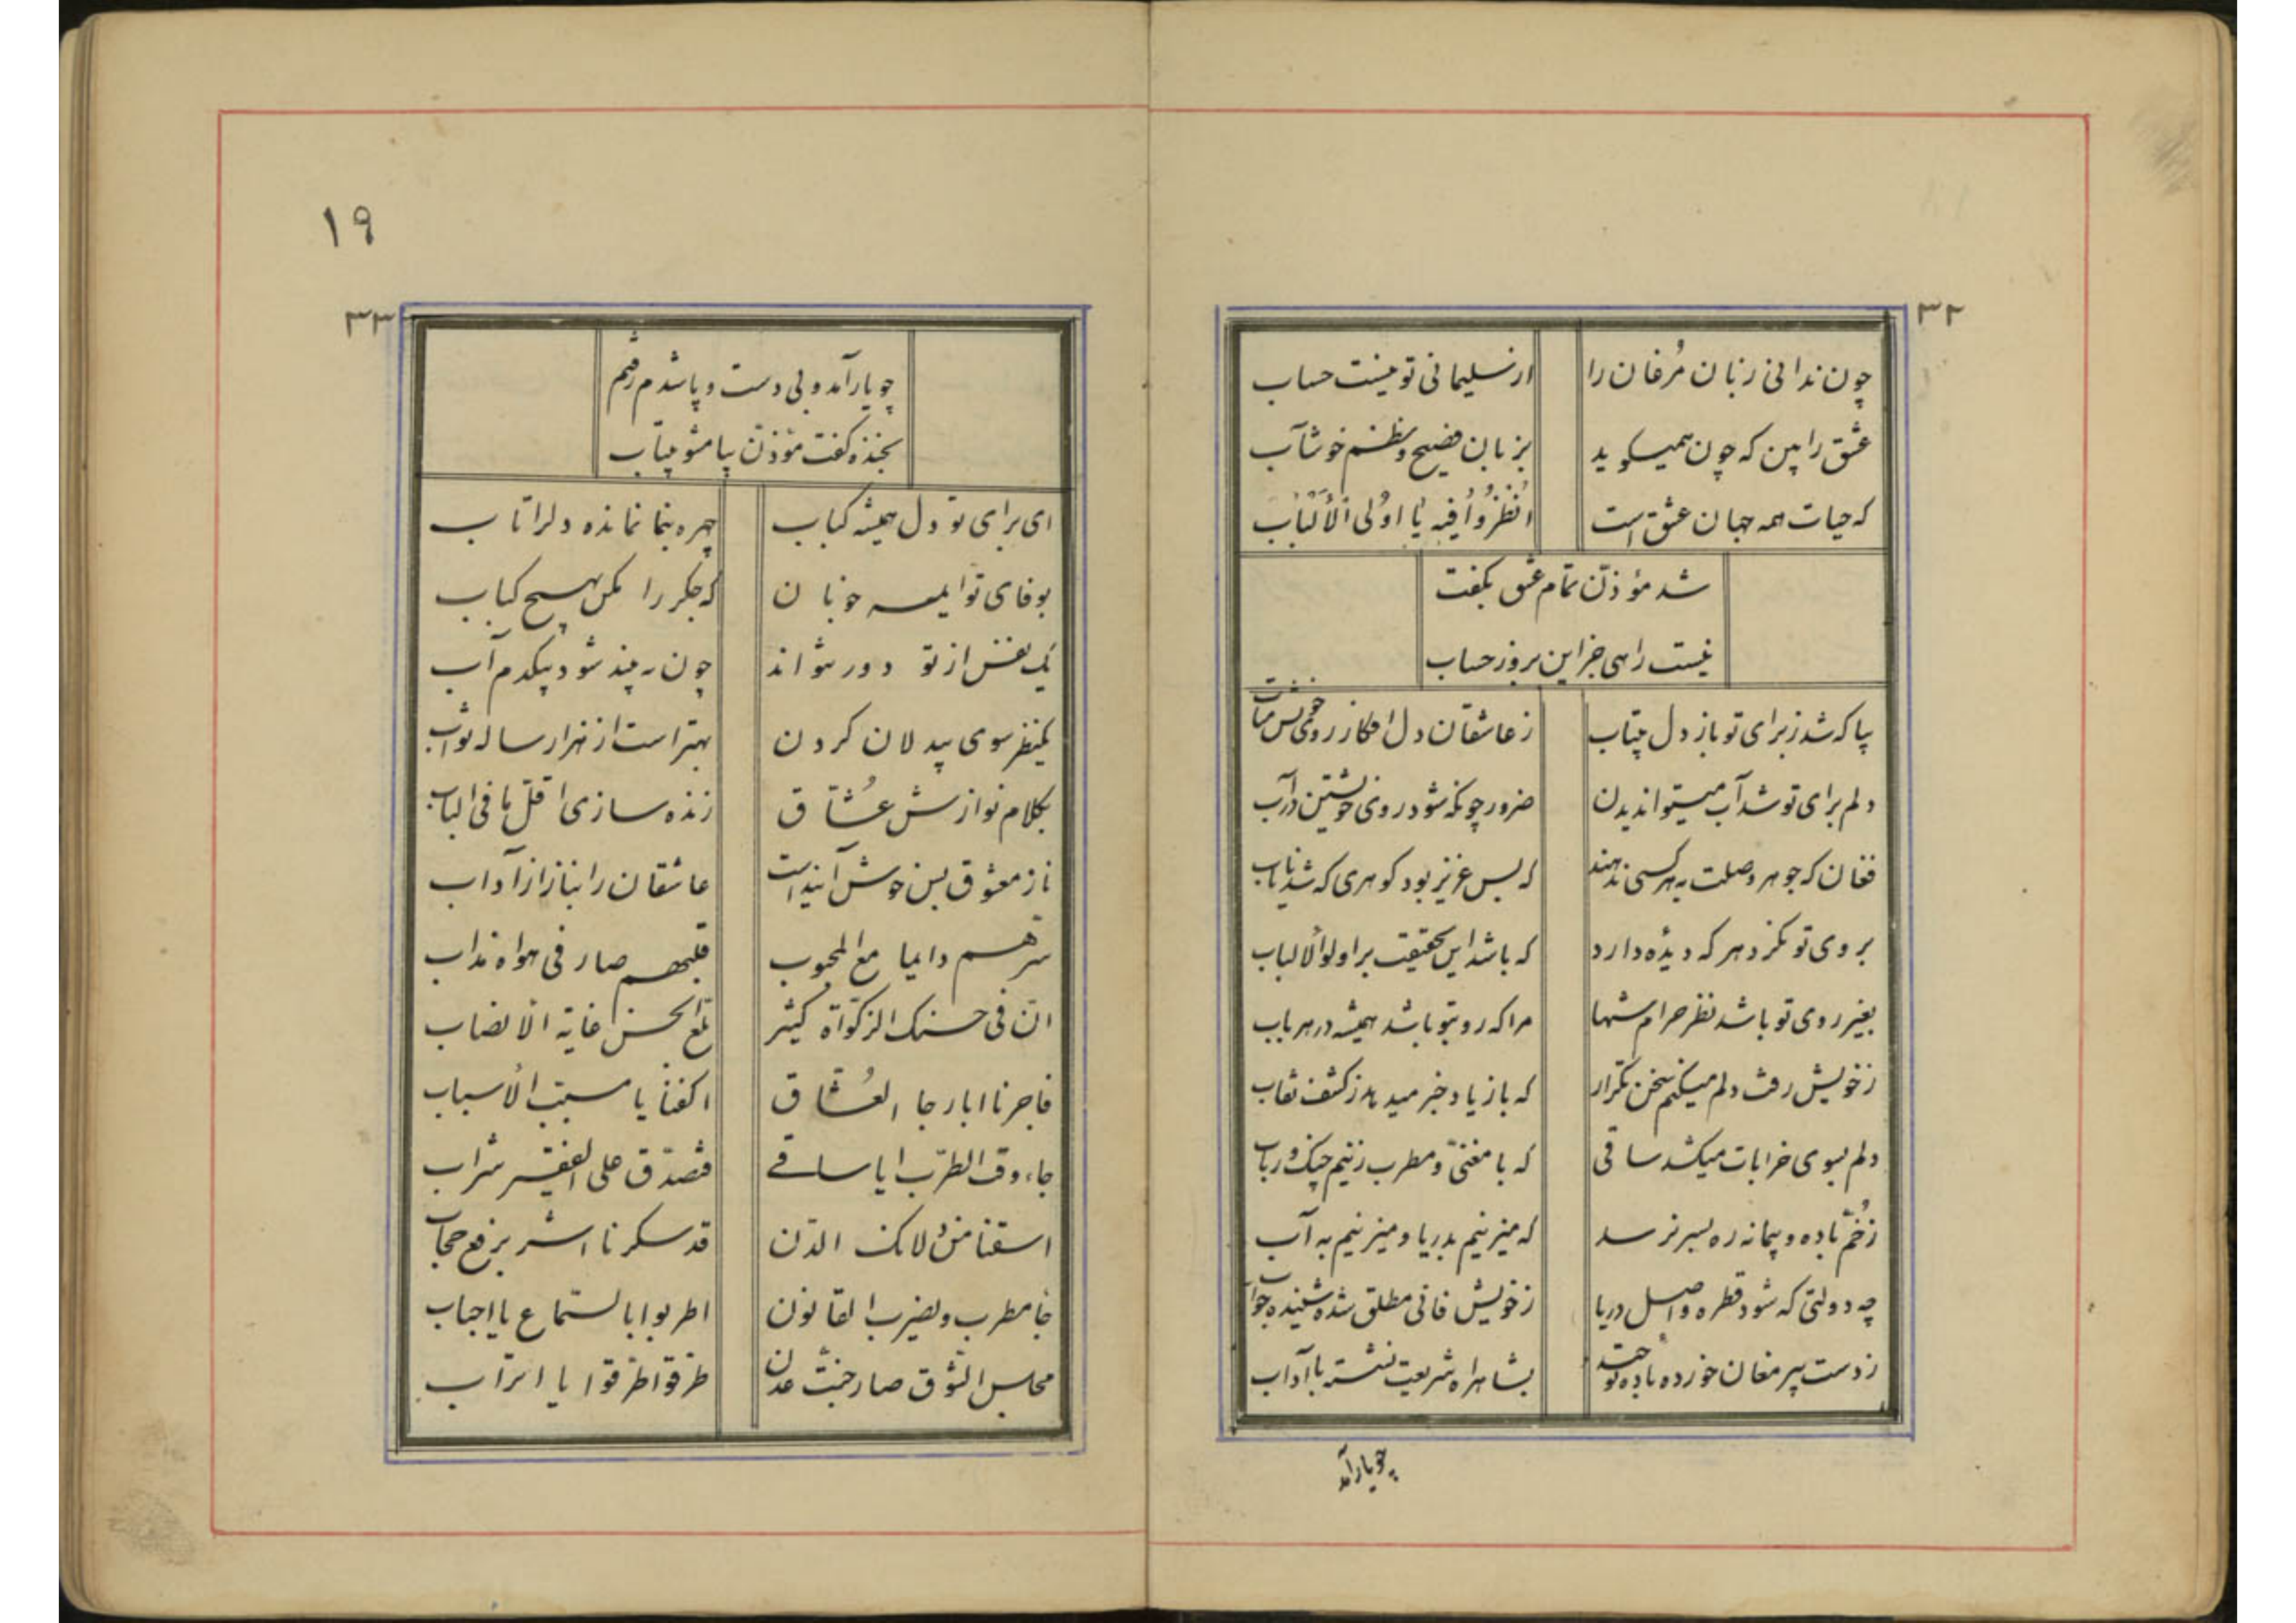 ۳۲
چون ندانی زبان مُرغان را از سلیمانی تو نیست حساب
عشق را بین که چون همیگوید بزبان فصیح و نظم خوشآب
که حیات همه جهان عشق است اُنْظُرُوا فیهِ یٰا اُولی الْأَلْبٰاب
شد مؤذّن تمام عشق بگفت
نیست راهی جز این بروز حساب
بیا که شد ز برای تو باز دل بیتاب ز عاشقان دل افکار روی خویش متاب
دلم برای تو شد آب میتواند دیدن ضرور چونکه شود روی خویشتن در آب
فغان که جوهر وصلت بهر کسی ندهند که بس عزیز بود گوهری که شد نایاب
بروی تو نگرد هر که دیدهٔ دارد که باشد این بحقیقت بر اولوالالباب
بغیر روی تو باشد نظر حرام شها مرا که رو بتو باشد همیشه در هر باب
ز خویش رفت دلم میکنم سخن تکرار که باز یاد خبر میدهد ز کشف نقاب
دلم بسوی خرابات میکشد ساقی که با مغنّی و مطرب زنیم چنگ و رباب
ز خُمّ باده و پیمانه ره بسر نرسد که میزنیم بدریا و میزنیم به آب
چه دولتی که شود قطره واصل دریا ز خویش فانی مطلق شده شنیده جواب
ز دست پیر مغان خورده باده توحید بشاهراه شریعت نشسته با آداب
چو یار آمد
۱۹
۳۳
چو یار آمد و بی دست و پا شدم رفتم
بخنده گفت مؤذّن بیا مشو بیتاب
ای برای تو دل همیشه کباب چهره بنما نمانده دلرا تاب
بوفای تو ایمه خوبان که جگر را مکن بهیچ کباب
یک نفس از تو دور نتواند چون به بیند شود بیکدم آب
یکنظر سوی بیدلان کردن بهتر است از هزار ساله ثواب
بکلام نوازش عُشّاق زنده سازی اقلّ ما فی الباب
ناز معشوق بس خوش آینداست عاشقان را نیاز از آداب
سرّهم دایما مع المحبوب قلبهم صار فی هواه مذاب
انّ فی حسنک الزکوٰة کثیر بلغ الحسن غایة الانصاب
فاجرنا ابا رجا العُشّاق اکفنا یا مسبّب الأسباب
جاء وقت الطرّب ایا ساقی فتصدّق علی الفقیر شراب
اسقنا من ولائک الدّن قد سکرنا اشر برفع حجاب
جا مطرب و یضرب القانون اطربوا بالسّماع یا احباب
مجلس الشّوق صار جنّت عدن طرقوا طرّقوا ایا اتراب